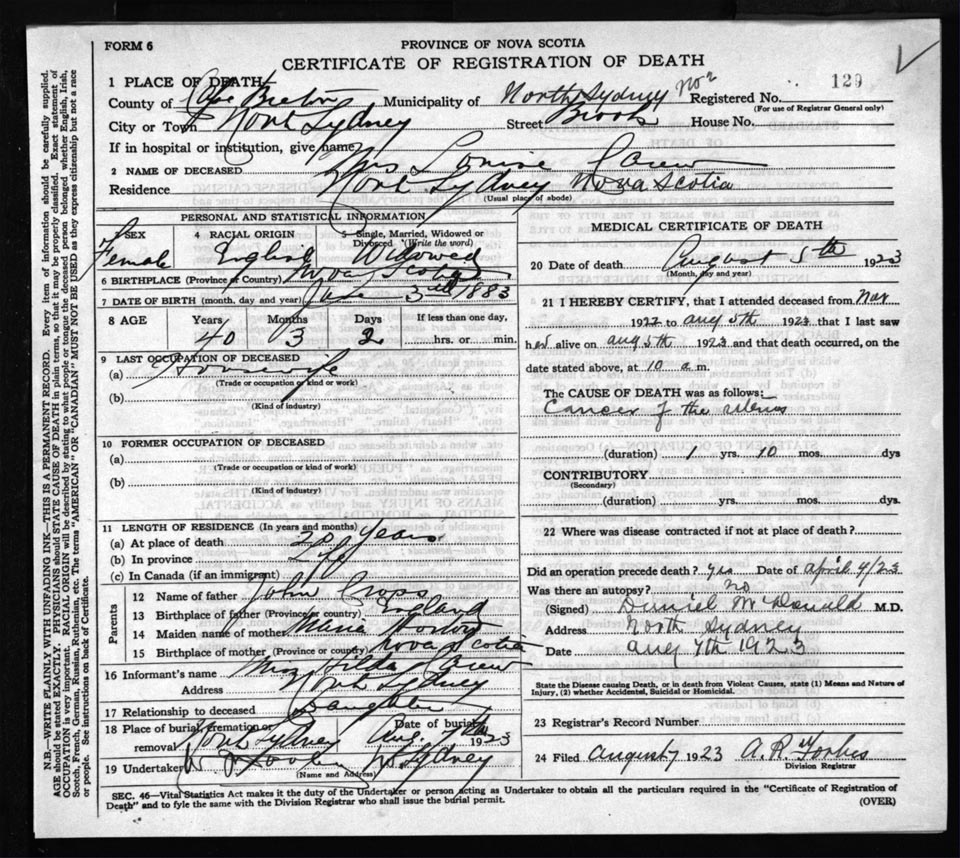 FORM 6
PROVINCE OF NOVA SCOTIA
CERTIFICATE OF REGISTRATION OF DEATH
129
1 PLACE OF DEATH
County of Cape Breton Municipality of North Sydney No 2 Registered No.
(For use of Registrar General only)
City or Town North Sydney Street Brook House No.
If in hospital or institution, give name
2 NAME OF DECEASED Mrs Louise Carew
Residence North Sydney Nova Scotia
(Usual place of abode)
PERSONAL AND STATISTICAL INFORMATION
3 SEX Female
4 RACIAL ORIGIN English
5 Single, Married, Widowed or Divorced (Write the word) Widowed
6 BIRTHPLACE (Province or Country) Nova Scotia
7 DATE OF BIRTH (month, day and year) 3rd 1883
8 AGE Years Months Days If less than one day,
40 3 2 hrs. or min.
9 LAST OCCUPATION OF DECEASED
(a) Housewife
(Trade or occupation or kind or work)
(b)
(Kind of industry)
10 FORMER OCCUPATION OF DECEASED
(a)
(Trade or occupation or kind of work)
(b)
(Kind of industry)
11 LENGTH OF RESIDENCE (In years and months)
(a) At place of death 20 years
(b) In province Life
(c) In Canada (if an immigrant)
Parents
12 Name of father John
13 Birthplace of father (Province or country) England
14 Maiden name of mother Maria
15 Birthplace of mother (Province or country) Nova Scotia
16 Informant's name Miss Hilda Carew
Address North Sydney
17 Relationship to deceased Daughter
18 Place of burial, cremation or removal North Sydney Date of burial Aug. 7th 1923
19 Undertaker N. Sydney
(Name and Address)
MEDICAL CERTIFICATE OF DEATH
20 Date of death August 5th 1923
(Month, day and year)
21 I HEREBY CERTIFY, that I attended deceased from Nov
1922 to aug 5th 1923 that I last saw
her alive on aug 5th 1923 and that death occurred, on the
date stated above, at 10 a.m.
The CAUSE OF DEATH was as follows:
Cancer of the uterus
(duration) 1 yrs. 10 mos. dys
CONTRIBUTORY
(Secondary)
(duration) yrs. mos. dys.
22 Where was disease contracted if not at place of death?
Did an operation precede death? yes Date of April 4/23
Was there an autopsy? no
(Signed) Daniel McDonald M.D.
Address North Sydney
Date aug 7th 1923
State the Disease causing Death, or in death from Violent Causes, state (1) Means and Nature of
Injury, (2) whether Accidental, Suicidal or Homicidal.
23 Registrar's Record Number
24 Filed August 7 1923 A. R. Forbes
Division Registrar
SEC. 46—Vital Statistics Act makes it the duty of the Undertaker or person acting as Undertaker to obtain all the particulars required in the "Certificate of Registration of
Death" and to fyle the same with the Division Registrar who shall issue the burial permit.
(OVER)
N.B.—WRITE PLAINLY WITH UNFADING INK—THIS IS A PERMANENT RECORD. Every item of information should be carefully supplied.
AGE should be stated EXACTLY. PHYSICIANS should STATE CAUSE OF DEATH in plain terms, so that it may be properly classified. Exact statement of
OCCUPATION is very important. RACIAL ORIGIN will be described by stating to what people or tongue the deceased person belonged whether English, Irish,
Scotch, French, German, Russian, Ruthenian, etc. The terms "AMERICAN" OR "CANADIAN" MUST NOT BE USED as they express citizenship but not a race
or people. See instructions on back of Certificate.